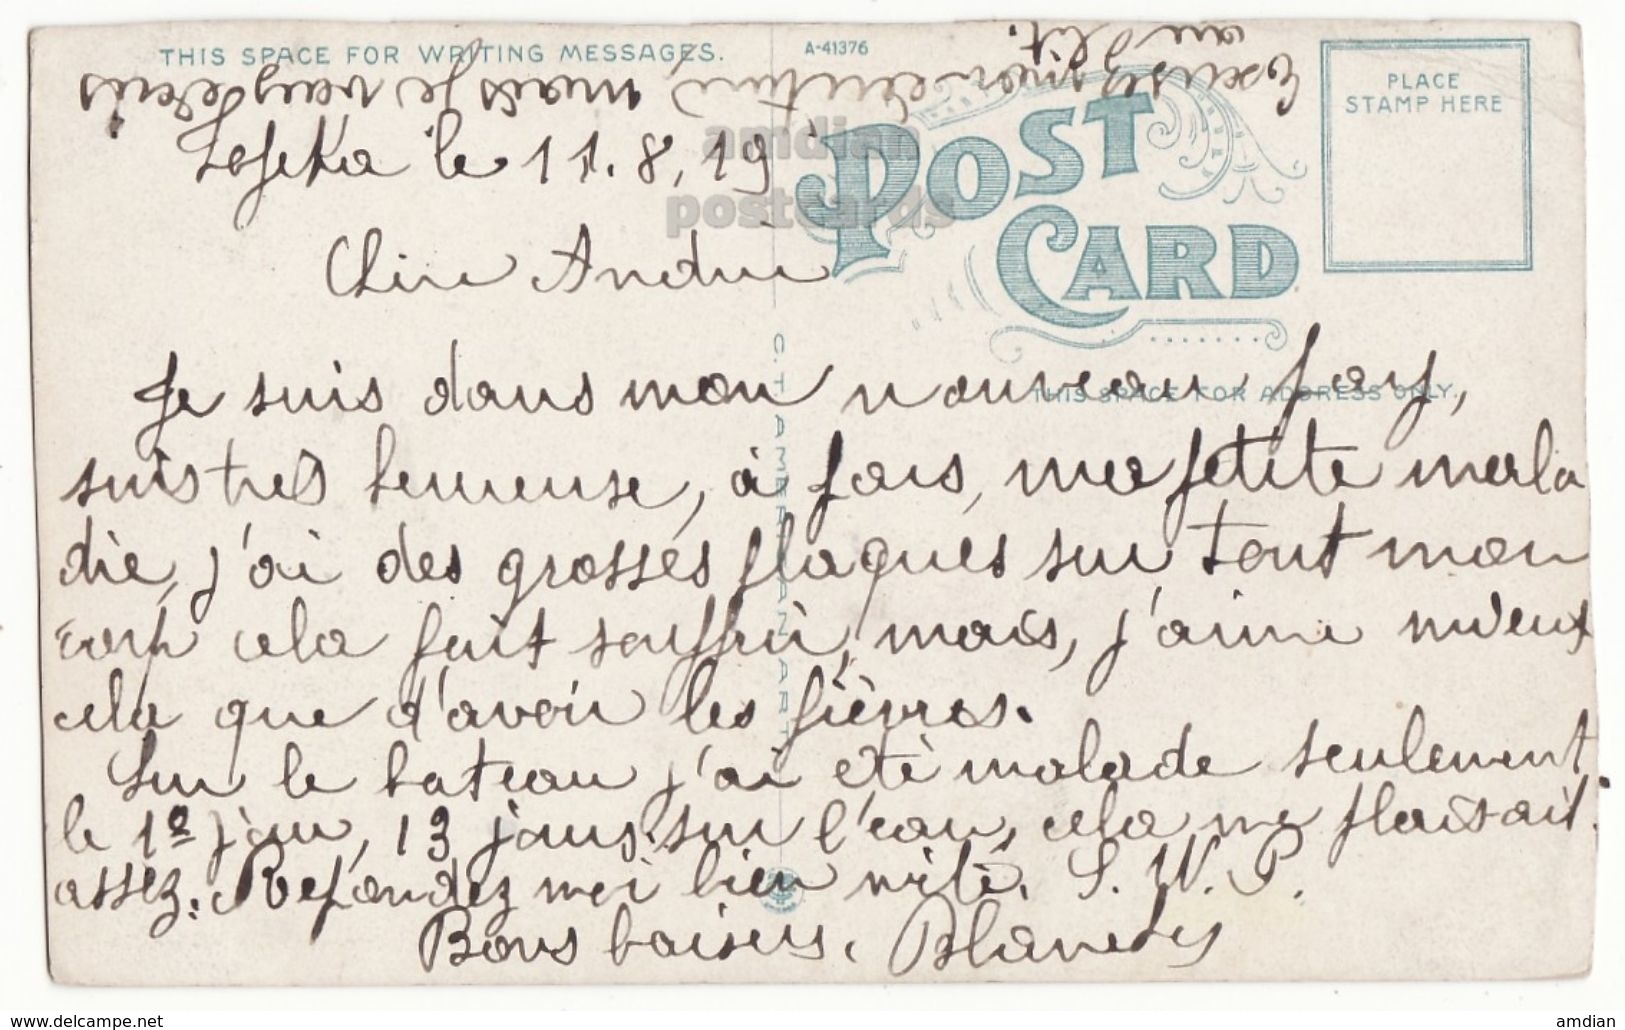 THIS SPACE FOR WRITING MESSAGES.
A-41376
PLACE
STAMP HERE
POST
CARD
THIS SPACE FOR ADDRESS ONLY.
C.T. AMERICAN ART
Excusez mon écriture, mais je vous écris
au lit.
le 11.8,19
Chère André
Je suis dans mon nouveau pays,
suis très heureuse, à pars, ma petite mala
die, j'ai des grosses plaques sur tout mon
corp cela fait souffrir, mais, j'aime mieux
cela que d'avoir les fièvres.
Sur le bateau j'ai été malade seulement
le 1º jour, 13 jours sur l'eau, cela me plaisait
assez. Repondez moi bien vite. S. V. P.
Bons baisers.
amdian
postcards
www.delcampe.net
amdian